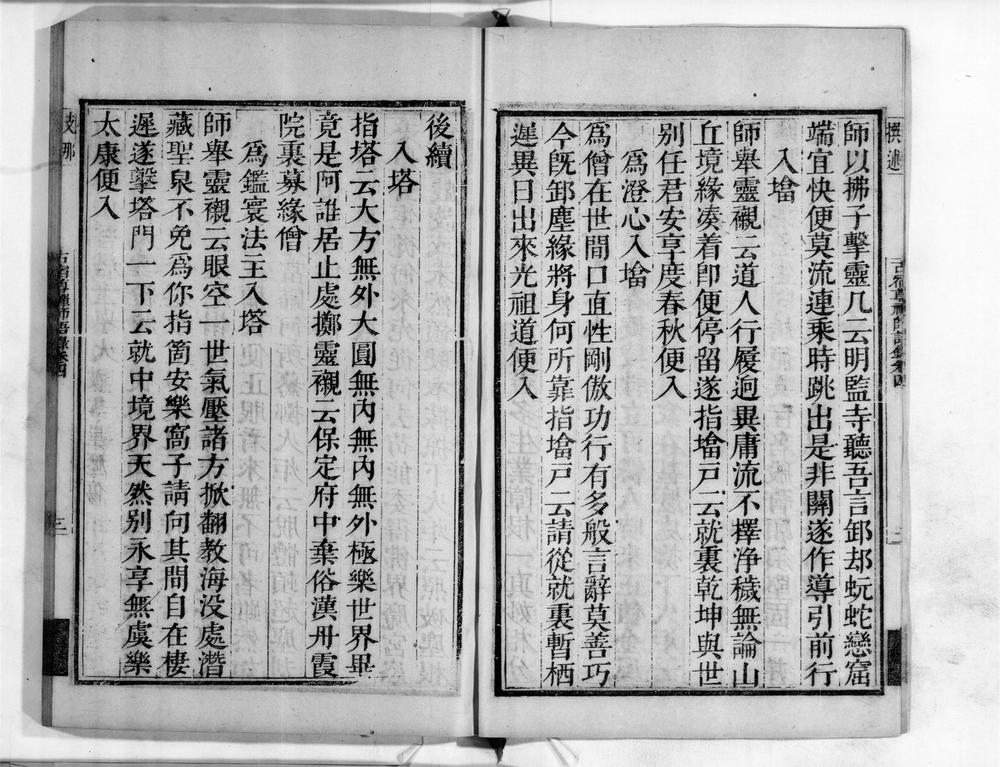 撰述
師以拂子擊靈几云明監寺聽吾言卸却蚖蛇戀窟
端宜快便莫流連乘時跳出是非關遂作導引前行
入墖
師舉靈襯云道人行履迥異庸流不擇淨穢無論山
丘境緣凑着卽便停留遂指墖戸云就裏乾坤與世
別任君安享度春秋便入
爲澄心入墖
爲僧在世間口直性剛傲功行有多般言辭莫善巧
今旣卸塵緣將身何所靠指墖戸云請從就裏暫栖
遲異日出來光祖道便入
二
後續
入塔
指塔云大方無外大圓無內無內無外極樂世界畢
竟是阿誰居止處擲靈襯云保定府中棄俗漢丹霞
院裏募緣僧
爲鑑寰法主入塔
師舉靈襯云眼空一世氣壓諸方掀翻教海没處潛
藏聖泉不免爲你指箇安樂窩子請向其間自在棲
遲遂擊塔門一下云就中境界天然别永享無虞樂
太康便入
支那
三